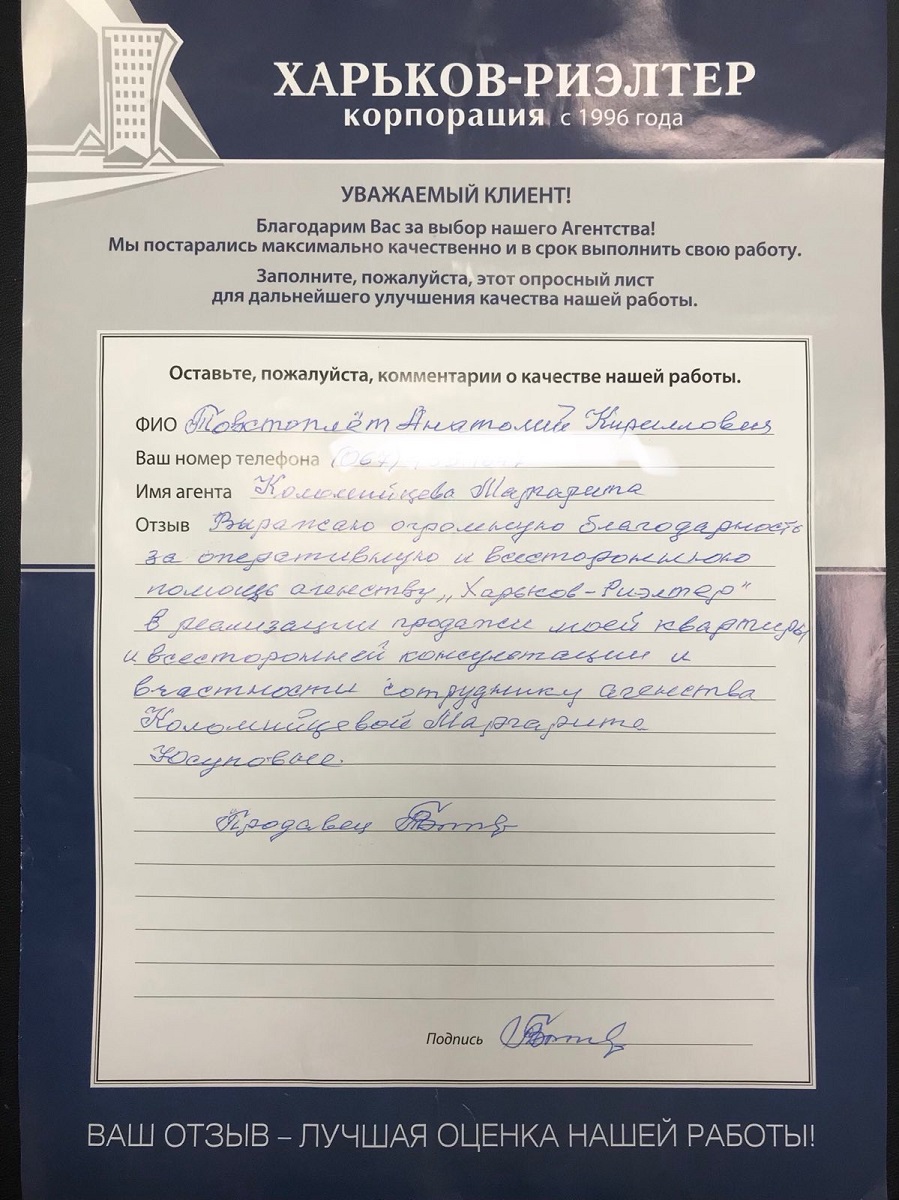 ХАРЬКОВ-РИЭЛТЕР
корпорация с 1996 года
УВАЖАЕМЫЙ КЛИЕНТ!
Благодарим Вас за выбор нашего Агентства!
Мы постарались максимально качественно и в срок выполнить свою работу.
Заполните, пожалуйста, этот опросный лист
для дальнейшего улучшения качества нашей работы.
Оставьте, пожалуйста, комментарии о качестве нашей работы.
ФИО Товстоплёт Анатолий Кириллович
Ваш номер телефона (067)
Имя агента Коломийцева Маргарита
Отзыв Выражаю огромную благодарность
за оперативную и всестороннюю
помощь агенству „Харьков-Риэлтер"
в реализации продажи моей квартиры
и всесторонней консультации и
вчастности сотруднику агенства
Коломийцевой Маргарите
Юсуповне.
Продавец
Подпись
ВАШ ОТЗЫВ – ЛУЧШАЯ ОЦЕНКА НАШЕЙ РАБОТЫ!